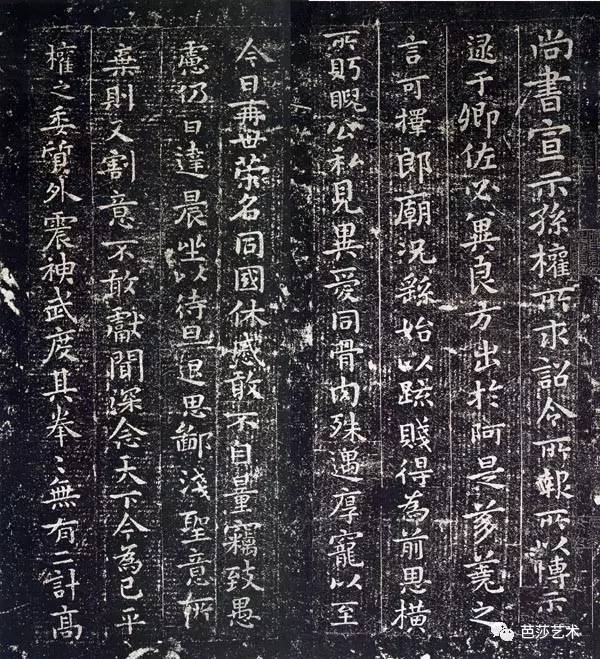 尚書宣示孫權所求詔令所報所以博示
逮于卿佐必冀良方出於阿是芻蕘之
言可擇郎廟況繇始以疏賤得為前恩橫
所眄睨公私見異愛同骨肉殊遇厚寵以至
今日再世榮名同國休慼敢不自量竊致愚
慮仍日達晨坐以待旦退思鄙淺聖意所
棄則又割意不敢獻聞深念天下今為已平
權之委質外震神武度其拳〻無有二計高
芭莎艺术